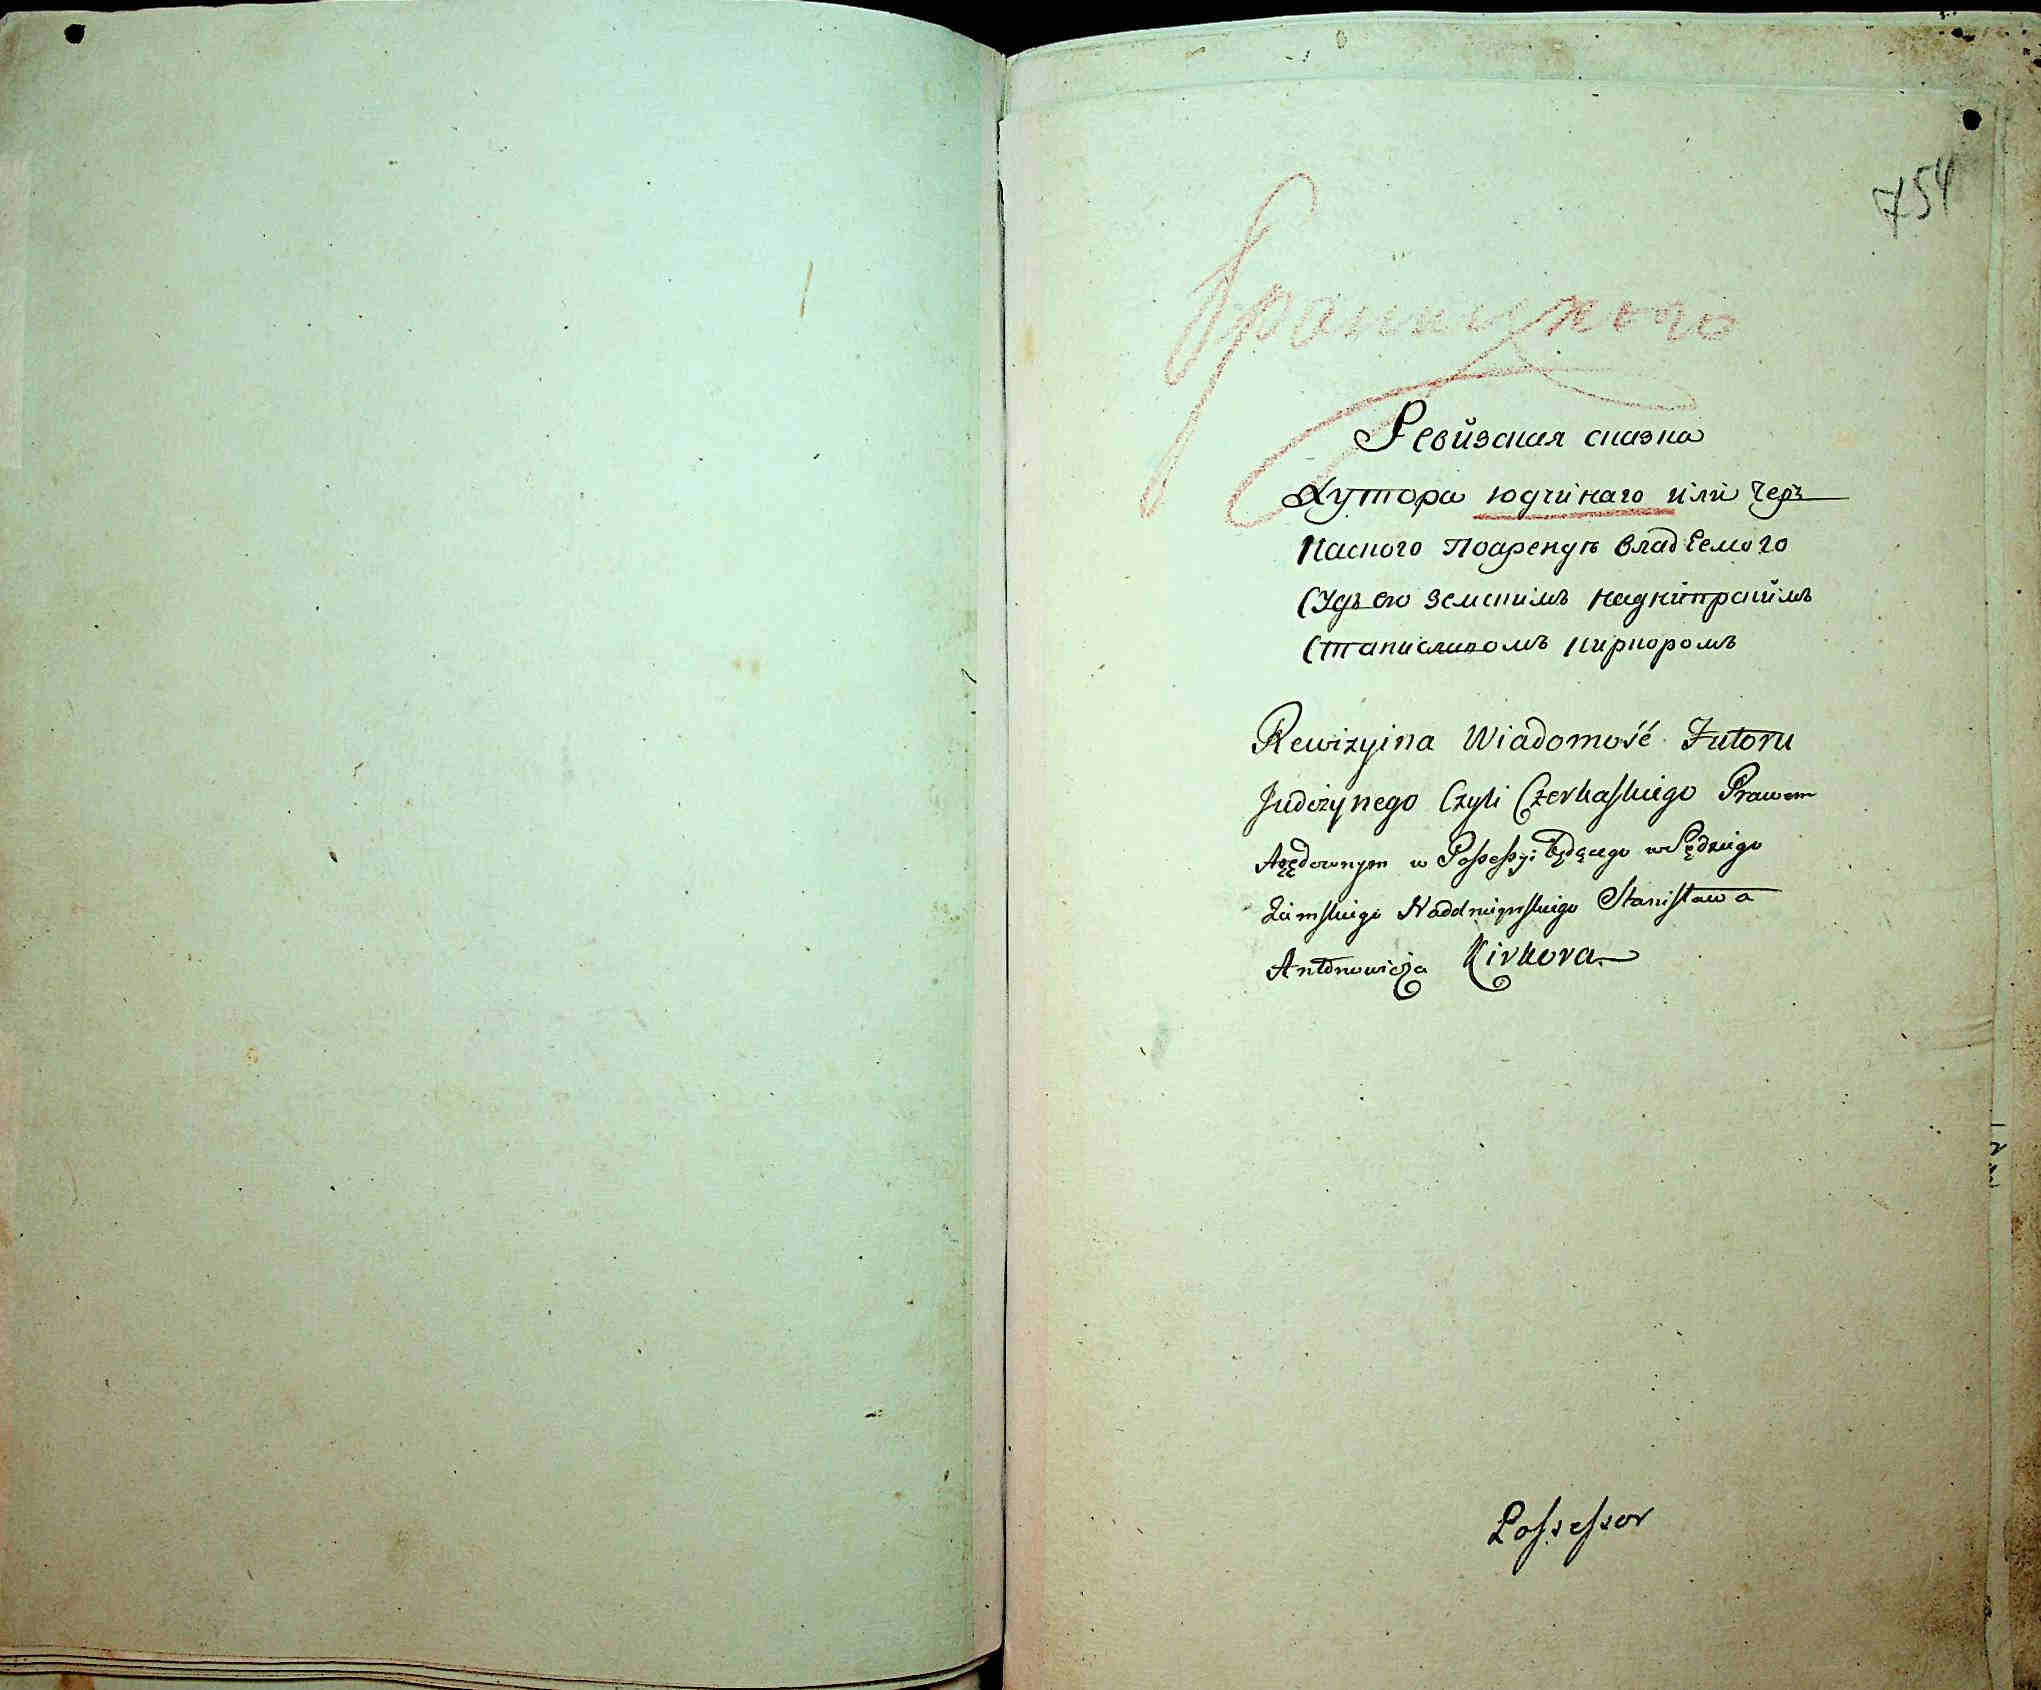 754
Браницкого
Ревизская сказка
Хутора Юдчинаго или Чер
касского поарендѣ владѣемого
Судьею земским наднипрским
Станиславомъ Киркоромъ
Rewizyina Wiadomość Futoru
Judczynego Czyli Czerkaskiego Prawem
Arędownym w Possessyi będącego w Sędziego
Ziemskiego Naddnieprskiego Stanisława
Antonowicza Kirkora
Possessor